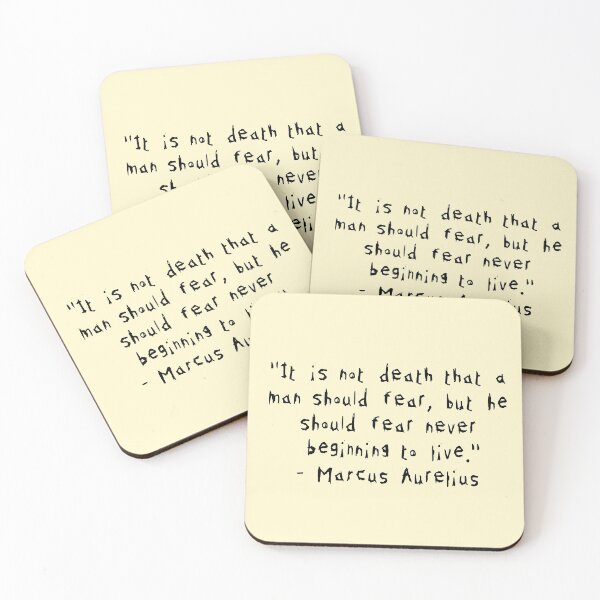 "It is not death that a
man should fear, but
never
live
"It is not death that a
man should fear, but he
should fear never
beginning to live."
- Marcus
"It is not death that a
man should fear, but he
should fear never
beginning to
- Marcus
"It is not death that a
man should fear, but he
should fear never
beginning to live."
- Marcus Aurelius